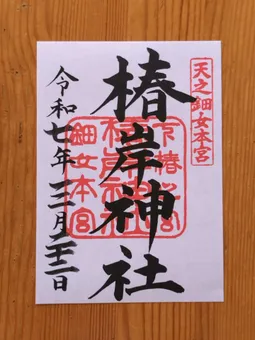 天之鈿女本宮
椿岸神社
令和七年三月二十二日
鈿女本宮